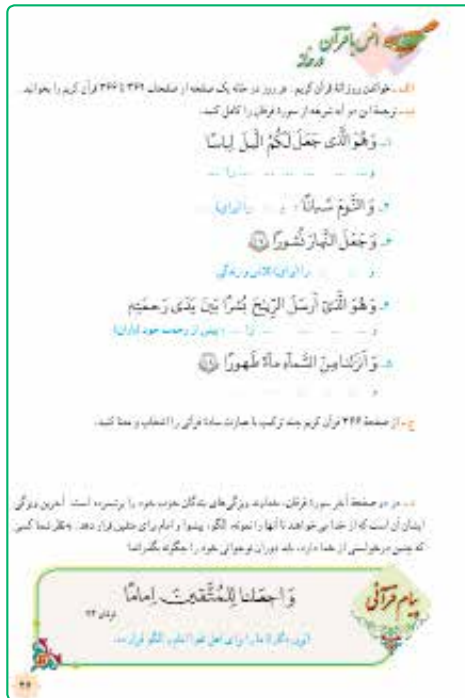 انس با قرآن در خانه
الف ـ خواندن روزانهٔ قرآن کریم: هر روز در خانه یک صفحه از صفحات ۳۶۱ تا ۳۶۶ قرآن کریم را بخوانید.
ب ـ ترجمهٔ این دو آیه شریفه از سورهٔ فرقان را کامل کنید.
۱ـ وَ هُوَ الَّذی جَعَلَ لَکُمُ الَّیلَ لِباسًا
و ... را ...
۲ـ وَ النَّومَ سُباتًا: و ... را (برای) ...
۳ـ وَ جَعَلَ النَّهارَ نُشورًا
و ... را (برای) تلاش و زندگی
۴ـ وَ هُوَ الَّذی أَرسَلَ الرِّیٰحَ بُشرًا بَینَ یَدَی رَحمَتِهِ
و ... را ... پیش از رحمت خود (باران)
۵ـ وَ أَنزَلنا مِنَ السَّماءِ ماءً طَهورًا
و ...
ج ـ از صفحهٔ ۳۶۶ قرآن کریم چند ترکیب یا عبارت سادهٔ قرآنی را انتخاب و معنا کنید.
د ـ در دو صفحهٔ آخر سورهٔ فرقان، خداوند ویژگی‌های بندگان خوب خود را برشمرده است. آخرین ویژگی
ایشان آن است که از خدا می‌خواهند تا آنها را نمونه، الگو، پیشوا و امام برای متقین قرار دهد. به‌نظر شما کسی
که چنین درخواستی از خدا دارد، باید دوران نوجوانی خود را چگونه بگذراند؟
پیام قرآنی
وَ اجعَلنا لِلمُتَّقینَ إِمامًا
فرقان، ۷۴
ما را برای اهل تقوا امام و الگو قرار ده.